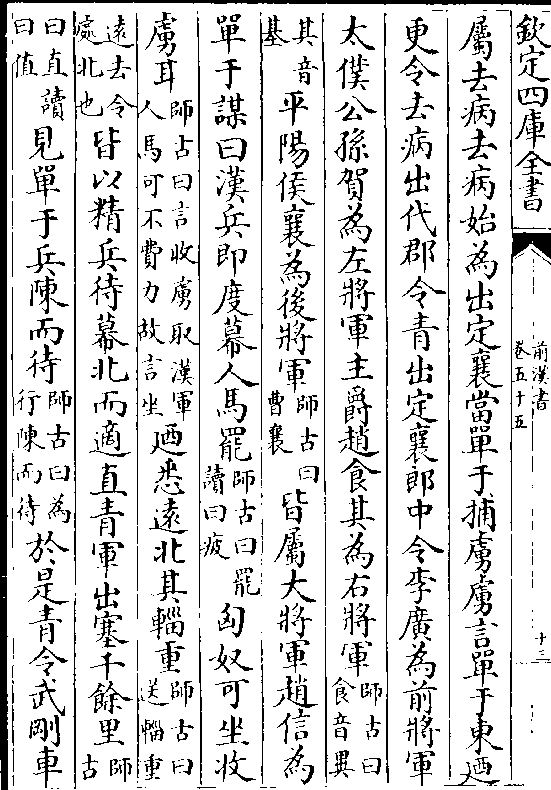 欽定四庫全書
前漢書
卷五十五
十三
屬去病去病始為出定襄當單于捕虜虜言單于東廼
更令去病出代郡令青出定襄郎中令李廣為前將軍
太僕公孫賀為左將軍主爵趙食其為右將軍師古曰食音異
其音基平陽侯襄為後將軍師古曰曹襄皆屬大將軍趙信為
單于謀曰漢兵即度幕人馬罷師古曰罷讀曰疲匈奴可坐收
虜耳師古曰言收虜取漢軍人馬可不費力故言坐廼悉遠北其輜重師古曰送輜重
遠去令處北也皆以精兵待幕北而適直青軍出塞千餘里師古
曰直讀曰值見單于兵陳而待師古曰為行陳而待於是青令武剛車